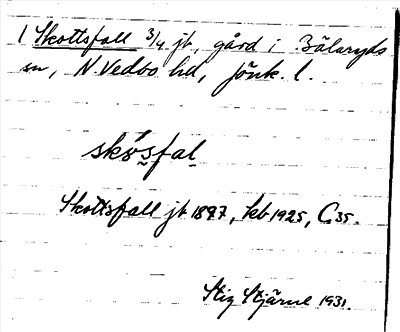 1 Skottsfall 3/4 jb, gård i Bälaryds
sn, N. Vedbo hd, Jönk. l.
skǿsfal
Skottsfall jb 1897, kb 1925, G 35.
Stig Stjärne 1931.